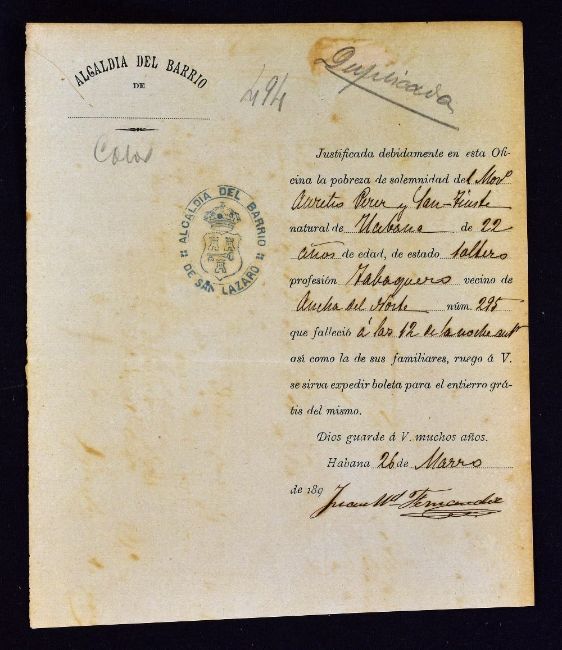 ALCALDIA DEL BARRIO
DE
494
Duplicada
ALCALDIA DEL BARRIO
DE SAN LAZARO
Justificada debidamente en esta Ofi-
cina la pobreza de solemnidad del Mor.º
Aurelio Perez y San
natural de Habana de 22
años de edad, de estado soltero
profesión Tabaquero vecino de
Ancha del Norte núm. 295
que falleció á las 12 de la noche antr
así como la de sus familiares, ruego á V.
se sirva expedir boleta para el entierro grá-
tis del mismo.
Dios guarde á V. muchos años.
Habana 26 de Marzo
de 189
Juan Mª Fernandez